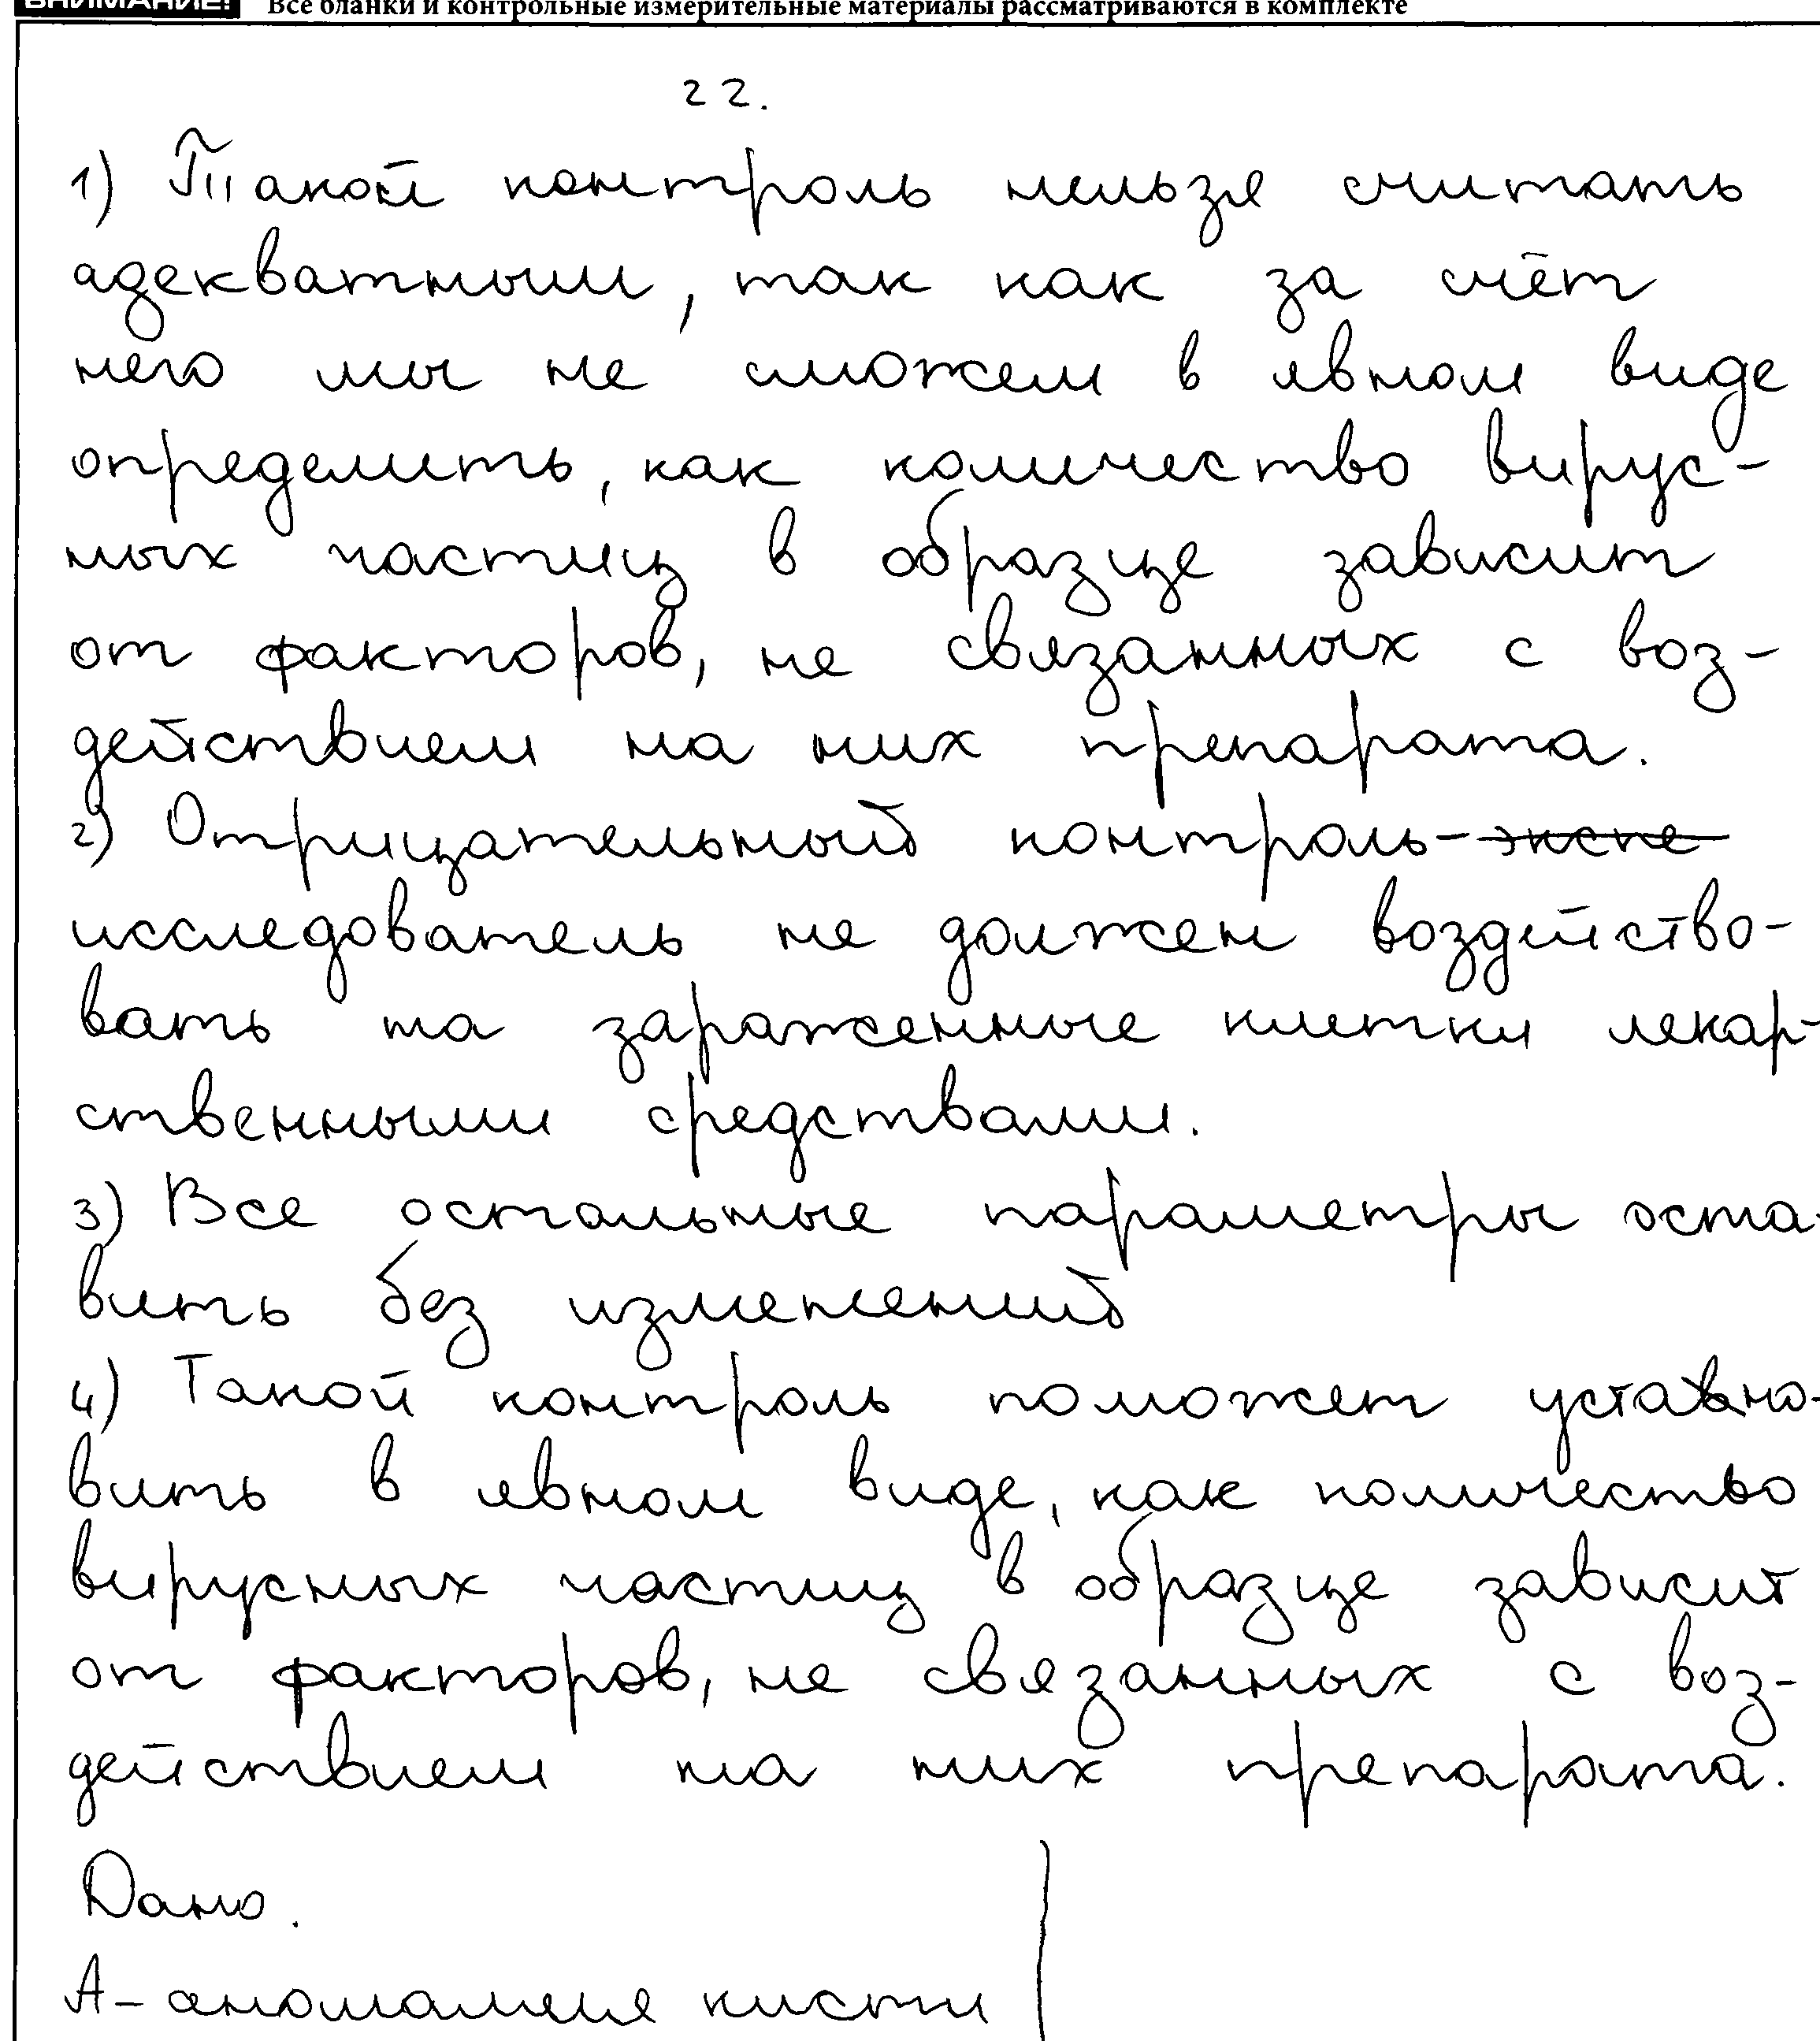 ВНИМАНИЕ! Все бланки и контрольные измерительные материалы рассматриваются в комплекте
22.
1) Такой контроль нельзя считать
адекватным, так как за счёт
него мы не сможем в явном виде
определить, как количество вирус-
ных частиц в образце зависит
от факторов, не связанных с воз-
действием на них препарата.
2) Отрицательный контроль- экспе
исследователь не должен воздейство-
вать на зараженные клетки лекар-
ственными средствами.
3) Все остальные параметры оста-
вить без изменений
4) Такой контроль поможет устано-
вить в явном виде, как количество
вирусных частиц в образце зависит
от факторов, не связанных с воз-
действием на них препарата.
Дано.
А- аномалия кисти